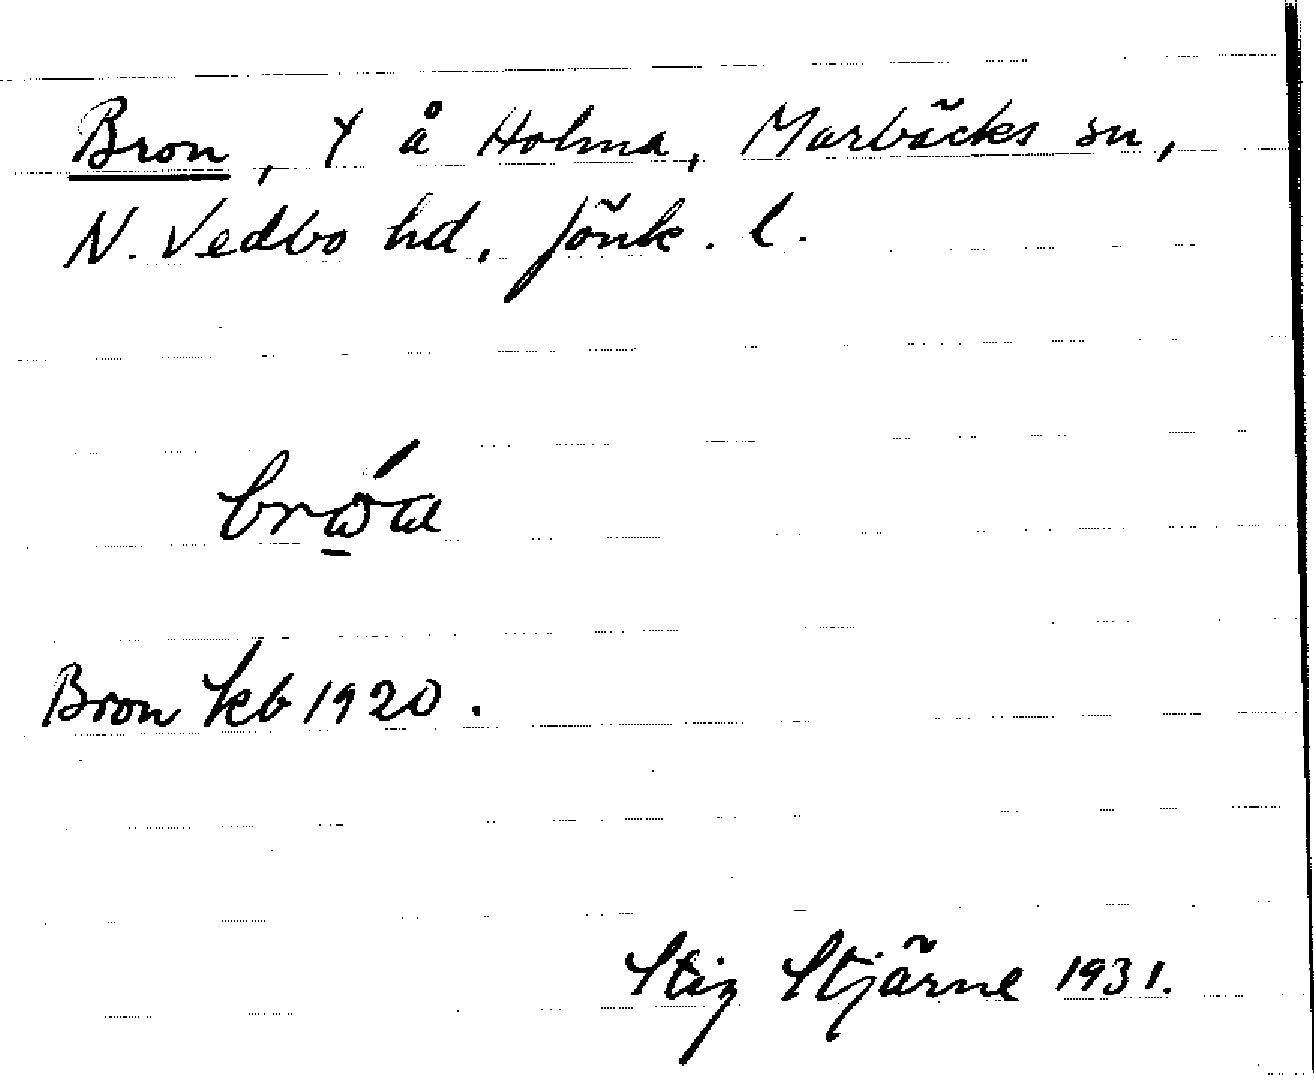 Bron, ɤ å Holma, Marbäcks sn,
N. Vedbo hd. Jönk. l.
Bron kb 1920.
Stig Stjärne 1931.